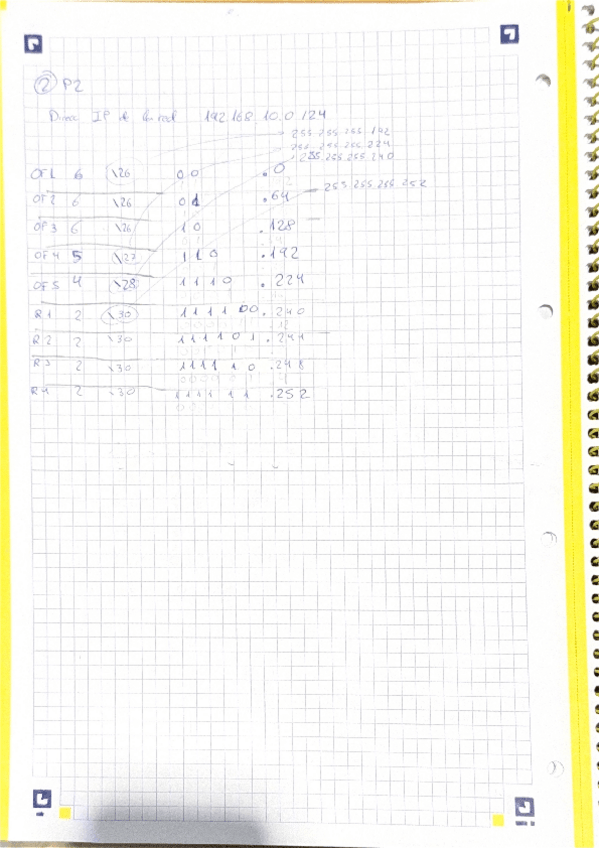 ② P2
Direcc IP de la red 192.168.10.0/24
255.255.255.192
255.255.255.224
255.255.255.240
OF1 6 \26 00 .0
255.255.255.252
OF2 6 \26 01 .64
OF3 6 \26 10 .128
OF4 5 \27 110 .192
OF5 4 \28 1110 .224
R1 2 \30 111100 .240
R2 2 \30 111101 .244
R3 2 \30 111110 .248
R4 2 \30 111111 .252